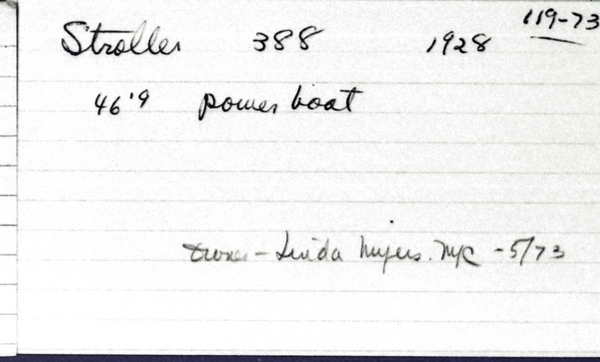 119-73
Stroller 388 1928
46'9 power boat
owner - Linda Myers. NYC - 5/73